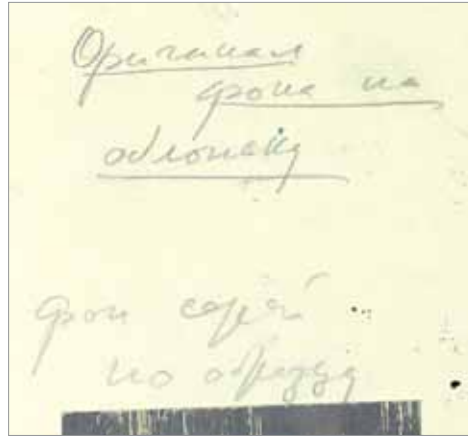 Оригинал
фона на
обложку
фон серый
по образцу